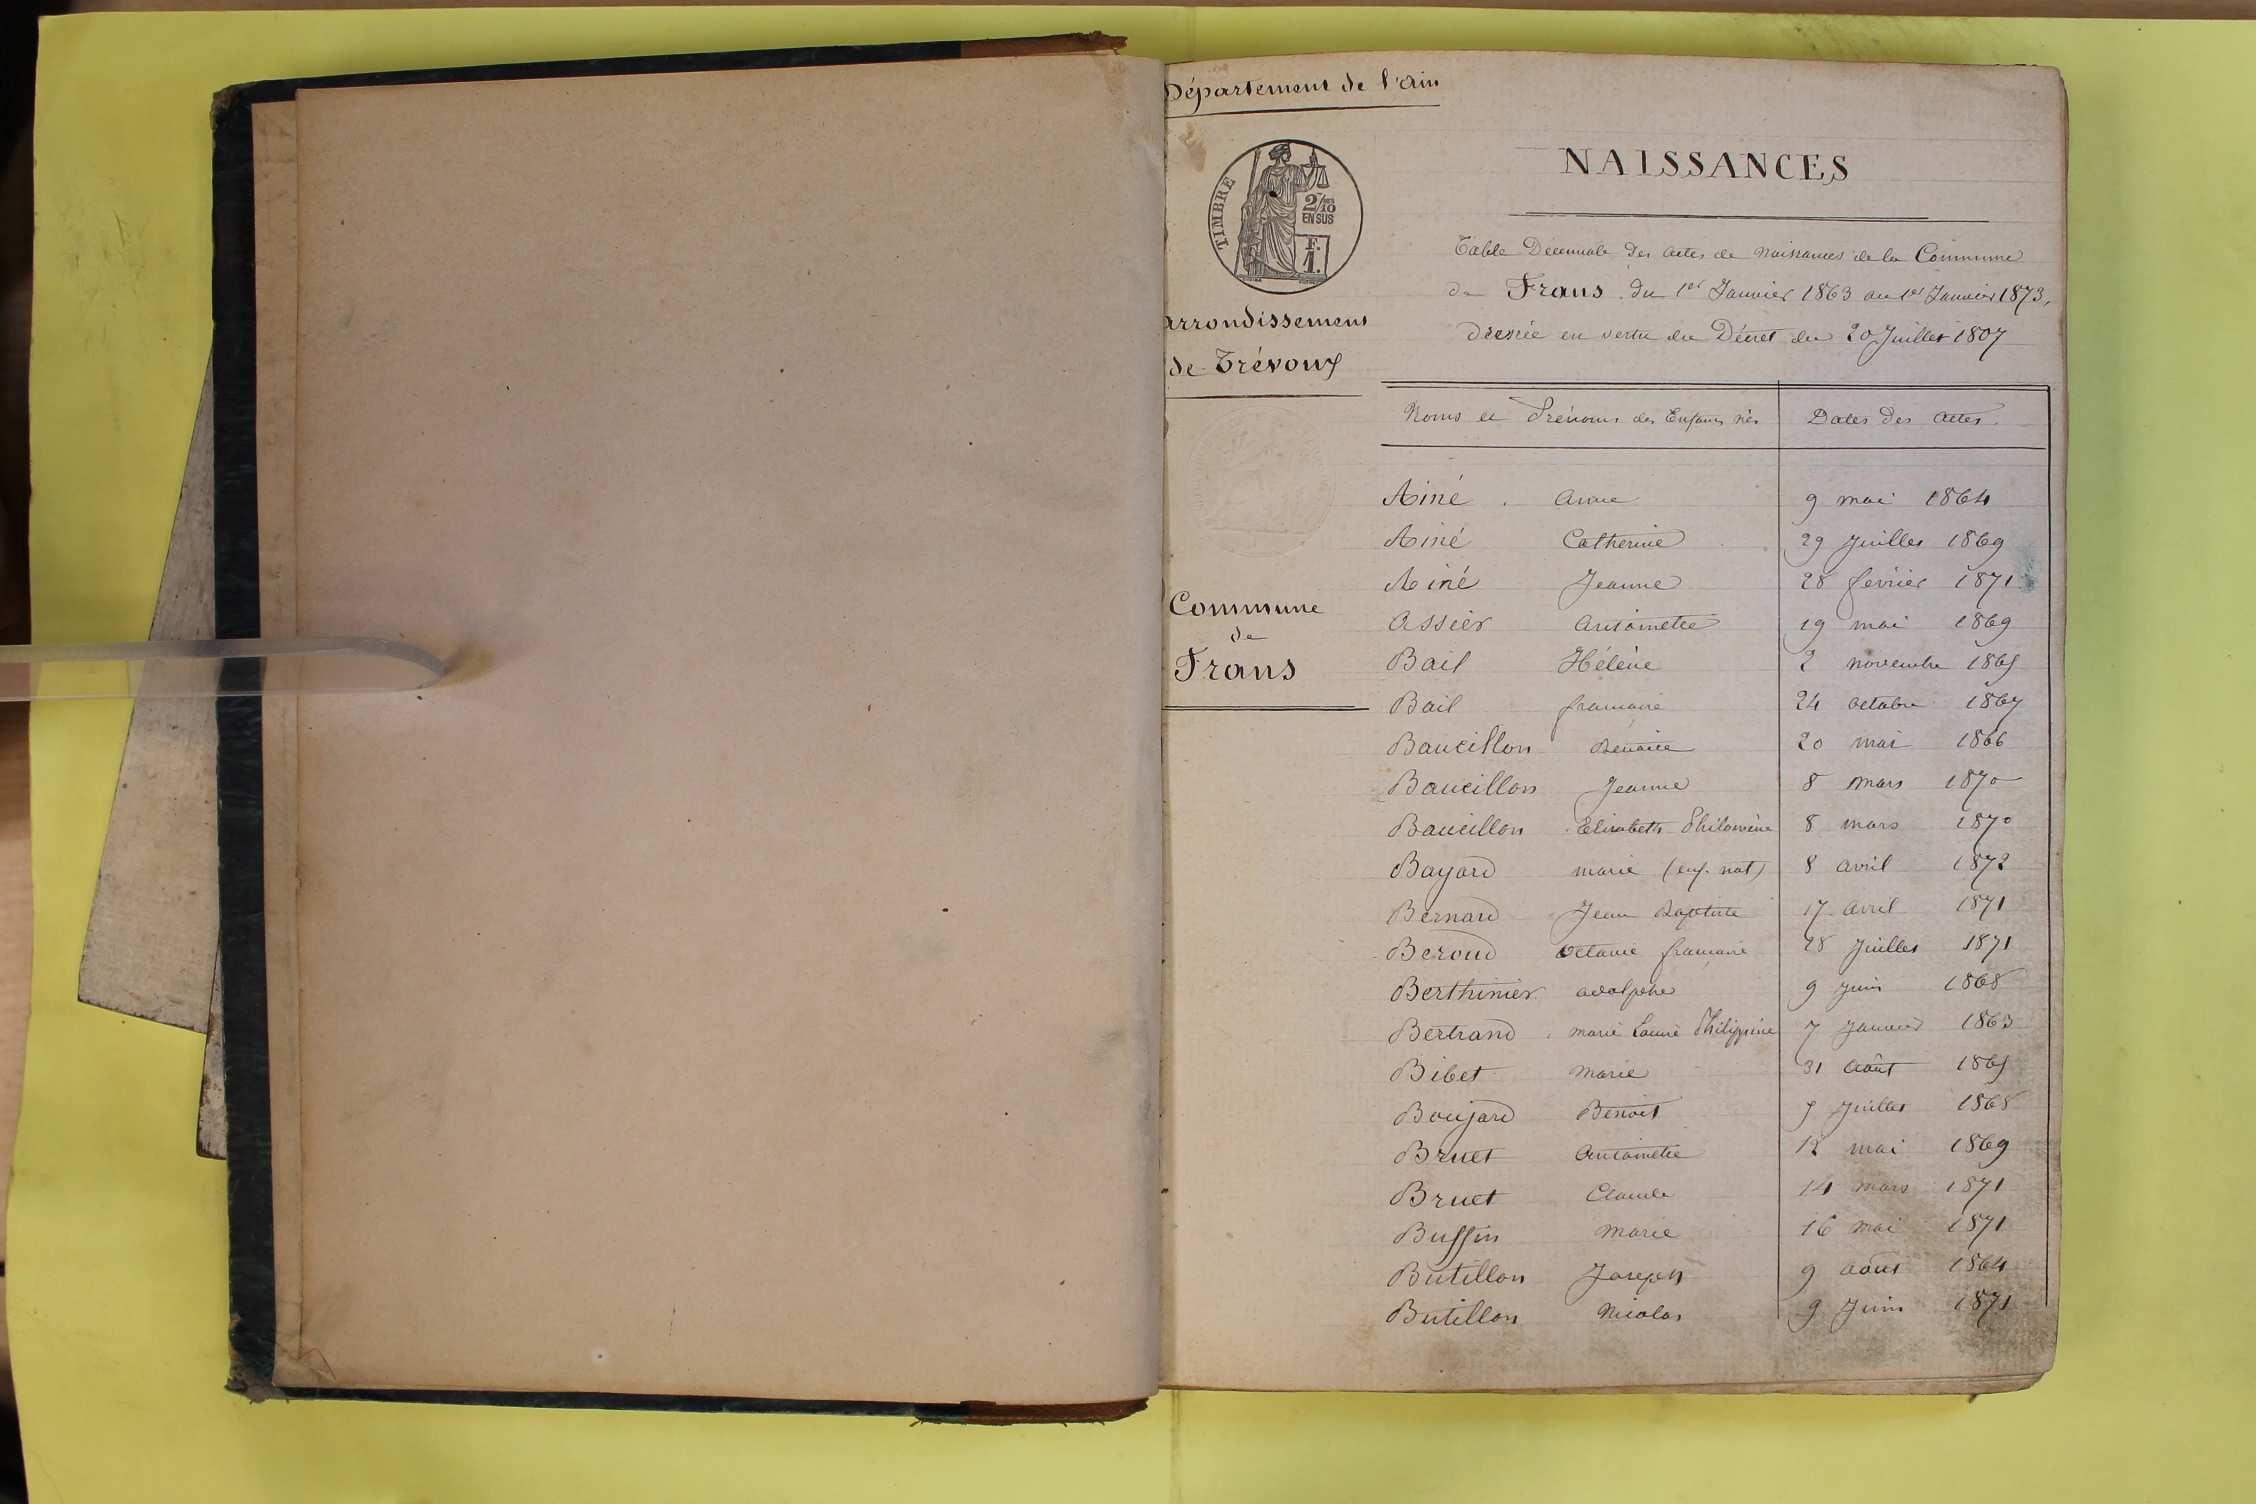 Département de l'Ain
TIMBRE
2/10
EN SUS
F.
1.
arrondissement
de Trévoux
Commune
de
Frans
NAISSANCES
Table Décennale des actes de Naissances de la Commune
de Frans du 1er Janvier 1863 au 1er Janvier 1873,
dressée en vertu du Décret du 20 Juillet 1807
Noms et Prénoms des Enfans nés Dates des Actes.
Ainé Anne 9 mai 1864
Ainé Catherine 29 Juillet 1869
Ainé Jeanne 28 février 1871
Assier Antoinette 19 mai 1869
Bail Hélène 2 novembre 1865
Bail françoise 24 octobre 1867
Baucillon Benoite 20 mai 1866
Baucillon Jeanne 8 mars 1870
Baucillon Elisabeth Philomène 8 mars 1870
Bayard marie (enf. nat) 8 avril 1872
Bernard Jean Baptiste 17 avril 1871
Beroud octavie françoise 28 Juillet 1871
Berthinier adolphe 9 Juin 1868
Bertrand marie Laure Philippine 7 Janvier 1863
Bibet Marie 31 Août 1865
Boujard Benoit 5 Juillet 1868
Bruet Antoinette 12 mai 1869
Bruet Claude 14 mars 1871
Buffin Marie 16 mai 1871
Butillon Joseph 9 août 1864
Butillon Nicolas 9 Juin 1871